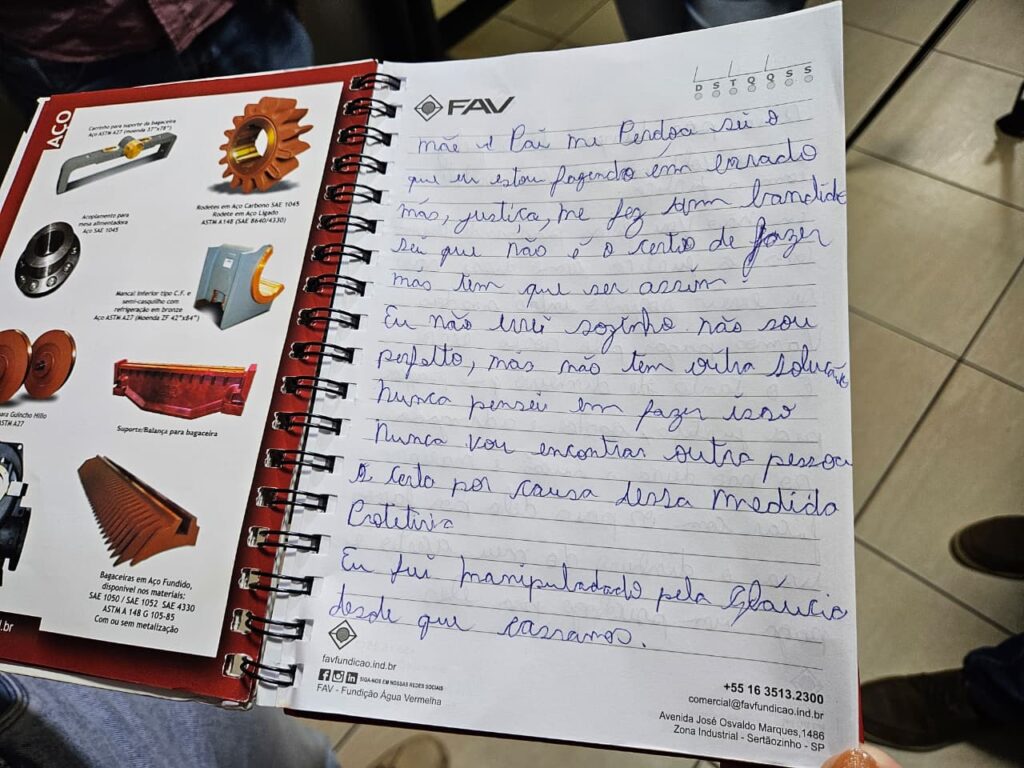 AÇO
Carrinho para suporte da bagaceira
Aço ASTM A27 (moenda 37"x78")
Rodetes em Aço Carbono SAE 1045
Rodete em Aço Ligado
ASTM A148 (SAE 8640/4330)
Acoplamento para
mesa alimentadora
Aço SAE 1045
Mancal Inferior tipo C.F. e
semi-casquilho com
refrigeração em bronze
Aço ASTM A27 (Moenda ZF 42"x84")
para Guincho Hillo
ASTM A27
Suporte/Balança para bagaceira
Bagaceiras em Aço Fundido,
disponível nos materiais:
SAE 1050 / SAE 1052 SAE 4330
ASTM A 148 G 105-85
Com ou sem metalização
.br
FAV
D S T Q Q S S
mãe e Pai me Perdoa sei o
que eu estou fazendo em errado
más, justiça, me fez um bandido
sei que não é o certo de fazer
más tem que ser assim.
Eu não errei sozinho não sou
perfeito, más não tem outra solução
Nunca pensei em fazer isso
Nunca vou encontrar outra pessoa
certo por causa dessa medida
Eu fui manipuladado pela Gláucia
desde que cassamos.
favfundicao.ind.br
SIGA-NOS EM NOSSAS REDES SOCIAIS
FAV - Fundição Água Vermelha
+55 16 3513.2300
comercial@favfundicao.ind.br
Avenida José Osvaldo Marques,1486
Zona Industrial - Sertãozinho - SP